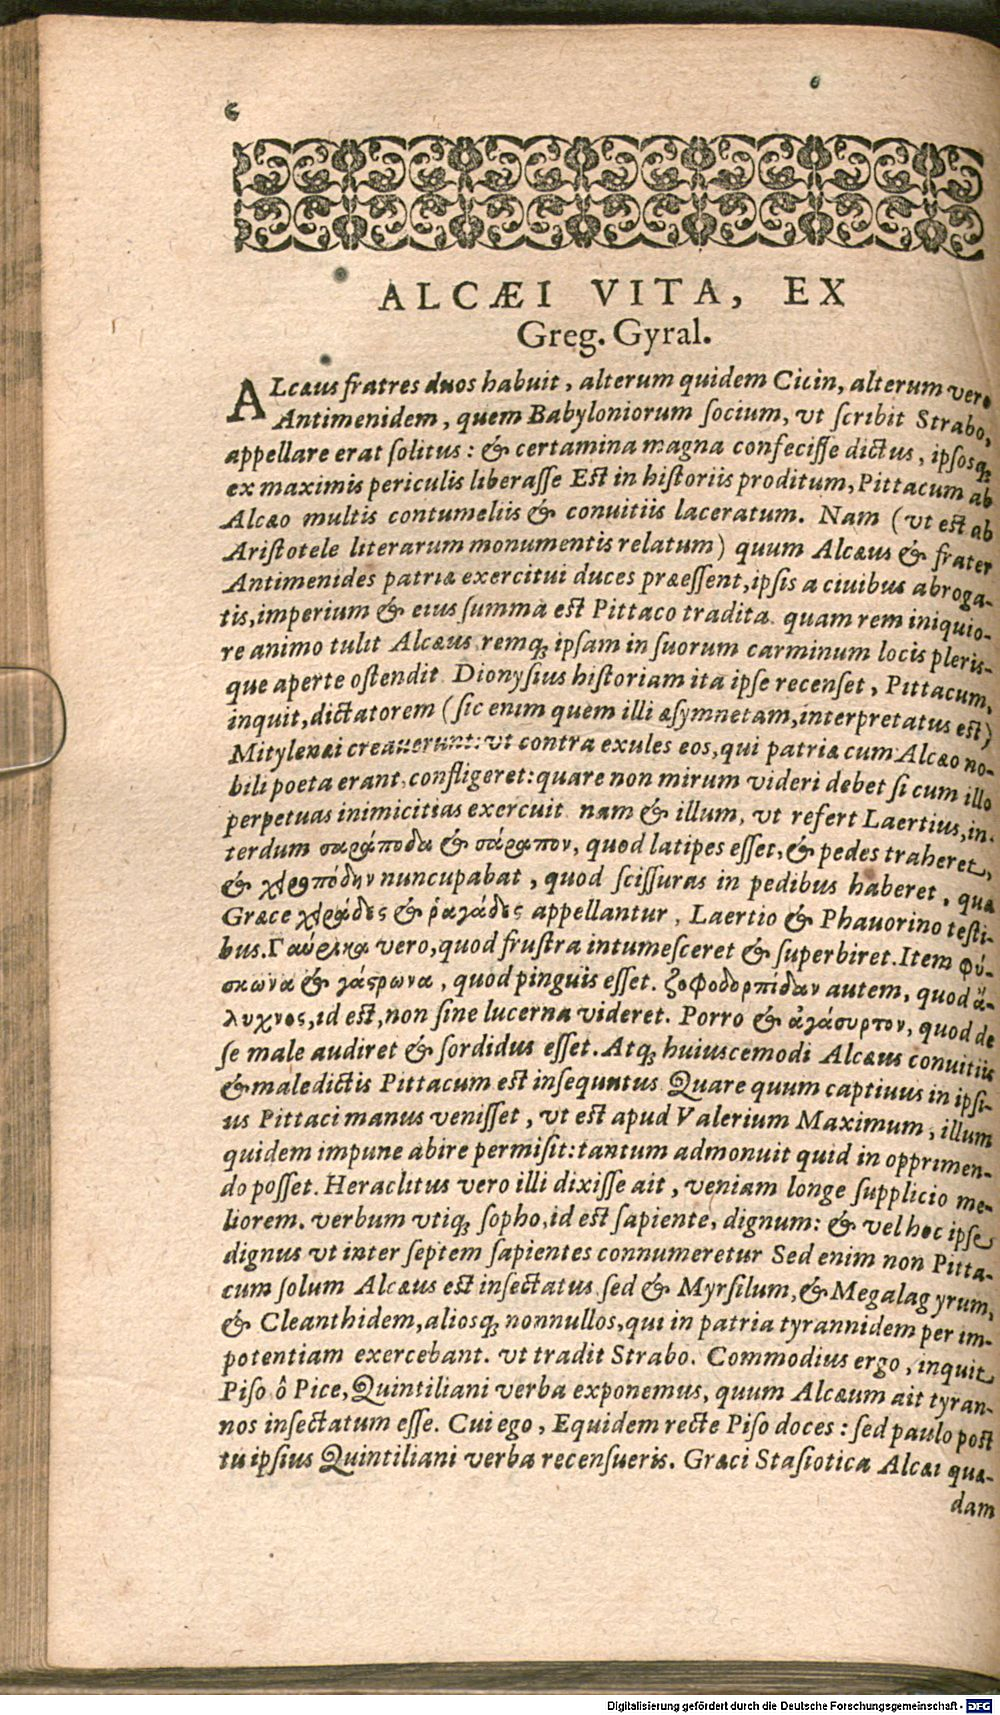 6
ALCÆI VITA, EX
Greg. Gyral.
ALcæus fratres duos habuit, alterum quidem Cicin, alterum vero
Antimenidem, quem Babyloniorum socium, vt scribit Strabo,
appellare erat solitus: & certamina magna confecisse dictus, ipsosq;
ex maximis periculis liberasse Est in historiis proditum, Pittacum ab
Alcæo multis contumeliis & conuitiis laceratum. Nam (vt est ab
Aristotele literarum monumentis relatum) quum Alcæus & frater
Antimenides patriæ exercitui duces præessent, ipsis a ciuibus abroga-
tis, imperium & eius summa est Pittaco tradita. quam rem iniquio-
re animo tulit Alcæus, remq; ipsam in suorum carminum locis pleris-
que aperte ostendit. Dionysius historiam ita ipse recenset, Pittacum,
inquit, dictatorem (sic enim quem illi æsymnetam, interpretatus est)
Mitylenæi creauerunt: vt contra exules eos, qui patria cum Alcæo no-
bili poeta erant, confligeret: quare non mirum videri debet si cum illo
perpetuas inimicitias exercuit nam & illum, vt refert Laertius, in-
terdum σαράποδα & σάραπον, quod latipes esset, & pedes traheret,
& χειροπόδην nuncupabat, quod scissuras in pedibus haberet, quæ
Græce χειράδες & ῥαγάδες appellantur, Laertio & Phauorino testi-
bus. Γαύρηκα vero, quod frustra intumesceret & superbiret. Item φύ-
σκωνα & γάστρωνα, quod pinguis esset. ζοφοδορπίδαν autem, quod ἄ-
λυχνος, id est, non sine lucerna videret. Porro & ἀγάσυρτον, quod de
se male audiret & sordidus esset. Atq; huiuscemodi Alcæus conuitiis
& maledictis Pittacum est insequutus Quare quum captiuus in ipsi-
us Pittaci manus venisset, vt est apud Valerium Maximum, illum
quidem impune abire permisit: tantum admonuit quid in opprimen-
do posset. Heraclitus vero illi dixisse ait, veniam longe supplicio me-
liorem. verbum vtiq; sopho, id est sapiente, dignum: & vel hoc ipse
dignus vt inter septem sapientes connumeretur Sed enim non Pitta-
cum solum Alcæus est insectatus, sed & Myrsilum, & Megalagyrum,
& Cleanthidem, aliosq; nonnullos, qui in patria tyrannidem per im-
potentiam exercebant. vt tradit Strabo. Commodius ergo, inquit
Piso ô Pice, Quintiliani verba exponemus, quum Alcæum ait tyran-
nos insectatum esse. Cui ego, Equidem recte Piso doces: sed paulo post
tu ipsius Quintiliani verba recensueris. Græci Stasiotica Alcæi quæ-
dam
Digitalisierung gefördert durch die Deutsche Forschungsgemeinschaft - DFG